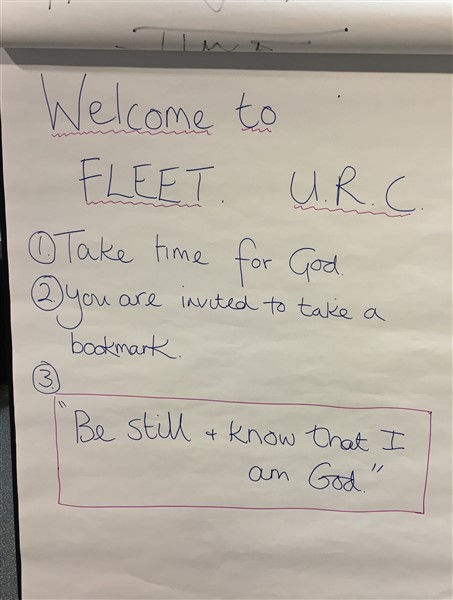 Welcome to
FLEET. U.R.C.
1. Take time for God.
2 you are invited to take a
bookmark.
3.
"Be still + know that I
am God."